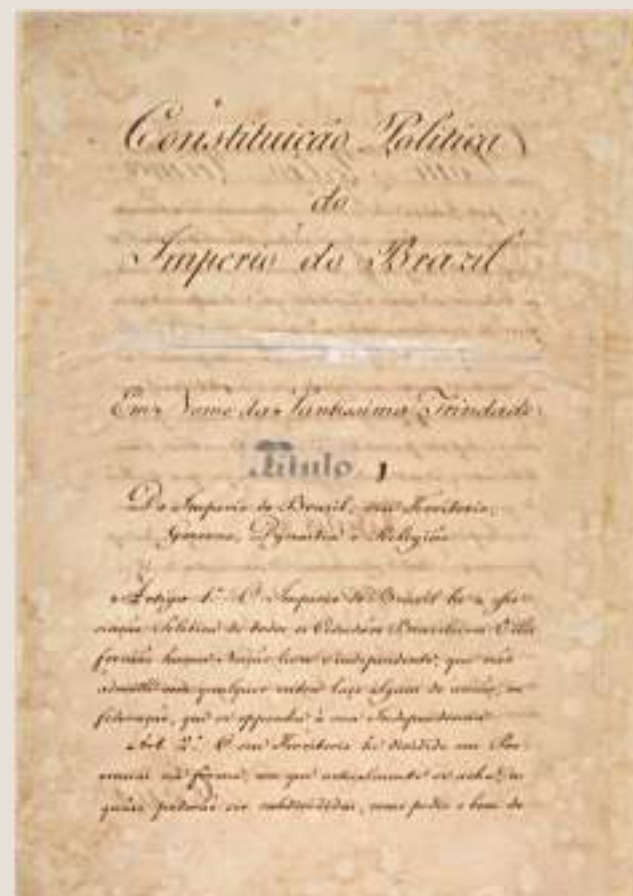 Constituição Politica
do
Imperio do Brazil
Em Nome da Santissima Trindade
Titulo 1
Do Imperio do Brazil, seu Territorio,
Governo, Dynastia e Religião
Artigo 1.º O Imperio do Brazil he a Asso-
ciação Politica de todos os Cidadãos Brazileiros. Elles
formão huma Nação livre e independente, que não
admitte com qualquer outra laço algum de união, ou
federação, que se opponha à sua Independencia
Art. 2.º O seu Territorio he dividido em Pro-
vincias na fórma, em que actualmente se acha, as
quaes poderão ser subdivididas, como pedir o bem do